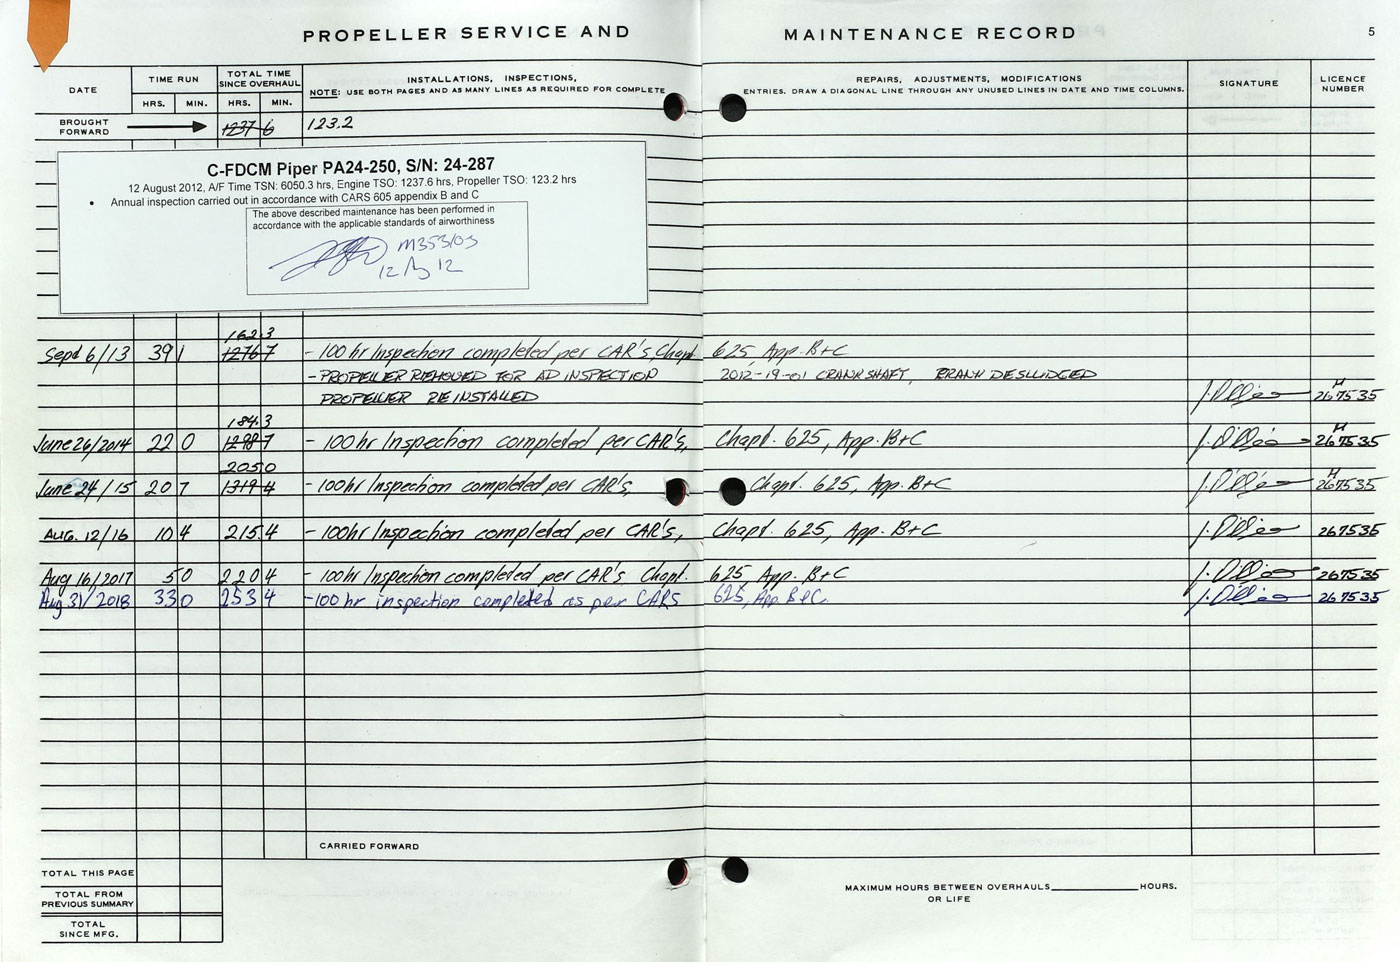 PROPELLER SERVICE AND MAINTENANCE RECORD 5
DATE TIME RUN HRS. MIN. TOTAL TIME SINCE OVERHAUL HRS. MIN.
INSTALLATIONS, INSPECTIONS, REPAIRS, ADJUSTMENTS, MODIFICATIONS SIGNATURE LICENCE NUMBER
NOTE: USE BOTH PAGES AND AS MANY LINES AS REQUIRED FOR COMPLETE ENTRIES. DRAW A DIAGONAL LINE THROUGH ANY UNUSED LINES IN DATE AND TIME COLUMNS.
BROUGHT FORWARD 1237 6 123.2
C-FDCM Piper PA24-250, S/N: 24-287
12 August 2012, A/F Time TSN: 6050.3 hrs, Engine TSO: 1237.6 hrs, Propeller TSO: 123.2 hrs
• Annual inspection carried out in accordance with CARS 605 appendix B and C
The above described maintenance has been performed in
accordance with the applicable standards of airworthiness
M353103
12 12
162.3
Sept 6/13 39 1 1276 7 - 100 hr Inspection completed per CAR's, Chapt. 625, App. B+C
- PROPELLER REMOVED FOR AD INSPECTION 2012-19-01 CRANKSHAFT, CRANK DESLUDGED
PROPELLER REINSTALLED M 267535
184.3
June 26/2014 22 0 1298 7 - 100 hr Inspection completed per CAR's, Chapt. 625, App. B+C M 267535
205 0
June 24/15 20 7 1319 4 - 100hr Inspection completed per CAR's, Chapt. 625, App. B+C M 267535
AUG. 12/16 10 4 215.4 - 100hr Inspection completed per CAR's, Chapt. 625, App. B+C 267535
Aug 16/2017 5 0 220 4 - 100hr Inspection completed per CAR's Chapt. 625, App. B+C 267535
Aug 31/2018 33 0 253 4 - 100 hr inspection completed as per CARS 625, App. B&C. 267535
CARRIED FORWARD
TOTAL THIS PAGE
TOTAL FROM PREVIOUS SUMMARY
TOTAL SINCE MFG.
MAXIMUM HOURS BETWEEN OVERHAULS HOURS.
OR LIFE